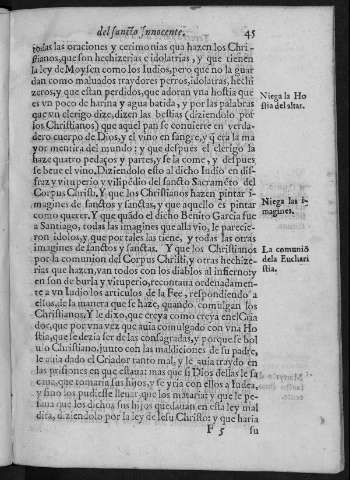 del sancto Innocente. 45
todas las oraciones y cerimonias que hazen los Chri-
stianos, que son hechizerias e idolatrias, y que tienen
la ley de Moysen como los Iudios, pero que no la guar
dan como maluados traydores perros, idolatras, hechi
zeros, y que estan perdidos, que adoran vna hostia que
es vn poco de harina y agua batida, y por las palabras
que vn clerigo dize, dizen las bestias (diziendolo por
los Christianos) que aquel pan se conuierte en verda-
dero cuerpo de Dios, y el vino en sangre, y q̃ era la ma
yor mentira del mundo: y que despues el clerigo la
haze quatro pedaços y partes, y se la come, y despues
se beue el vino. Diziendolo esto al dicho Iudio en dis-
fraz y vituperio y vilipẽdio del sancto Sacramẽto del
Corpus Christi. Y que los Christianos hazen pintar i-
magines de sanctos y sanctas, y que aquello es pintar
como querer. Y que quãdo el dicho Benito Garcia fue
a Santiago, todas las imagines que alla vio, le parecie-
ron idolos, y que por tales las tiene, y todas las otras
imagines de sanctos y sanctas. Y que los Christianos
por la comunion del Corpus Christi, y otras hechize-
rias que hazen, van todos con los diablos al infierno: y
en son de burla y vituperio, recontaua ordenadamen-
te a vn Iudio los articulos de la Fee, respondiendo a
ellos, de la manera que se haze, quando comulgan los
Christianos. Y le dixo, que creya como creya en el Cria
dor, que por vna vez que auia comulgado con vna Ho
stia, que se dezia ser de las consagradas, y porque se bol
uio Christiano, junto con las maldiciones de su padre,
le auia dado el Criador tanto mal, y le auia traydo en
las prisiones en que estaua: mas que si Dios dellas le sa
caua, que tomaria sus hijos, y se yria con ellos a Iudea,
y sino los pudiesse lleuar, que los mataria: y que le pe-
saua que los dichos sus hijos quedauan en esta ley mal
dita, diziendolo por la ley de Iesu Christo: y que haria
F 5 su
Niega la Ho
stia del altar.
Niega las i-
magines.
La comuniõ
dela Euchari
stia.